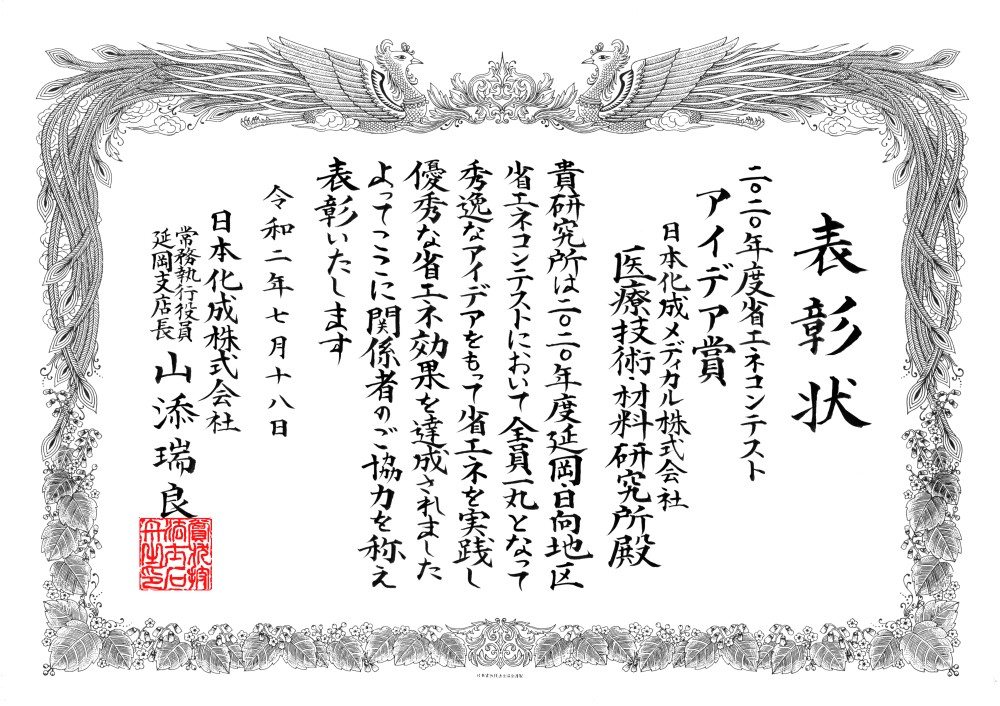 表彰状
二〇二〇年度省エネコンテスト
アイデア賞
日本化成メディカル株式会社
医療技術・材料研究所殿
貴研究所は二〇二〇年度延岡・日向地区
省エネコンテストにおいて全員一丸となって
秀逸なアイデアをもって省エネを実践し
優秀な省エネ効果を達成されました
よってここに関係者のご協力を称え
表彰いたします
令和二年七月十八日
日本化成株式会社
常務執行役員
延岡支店長
山添瑞良